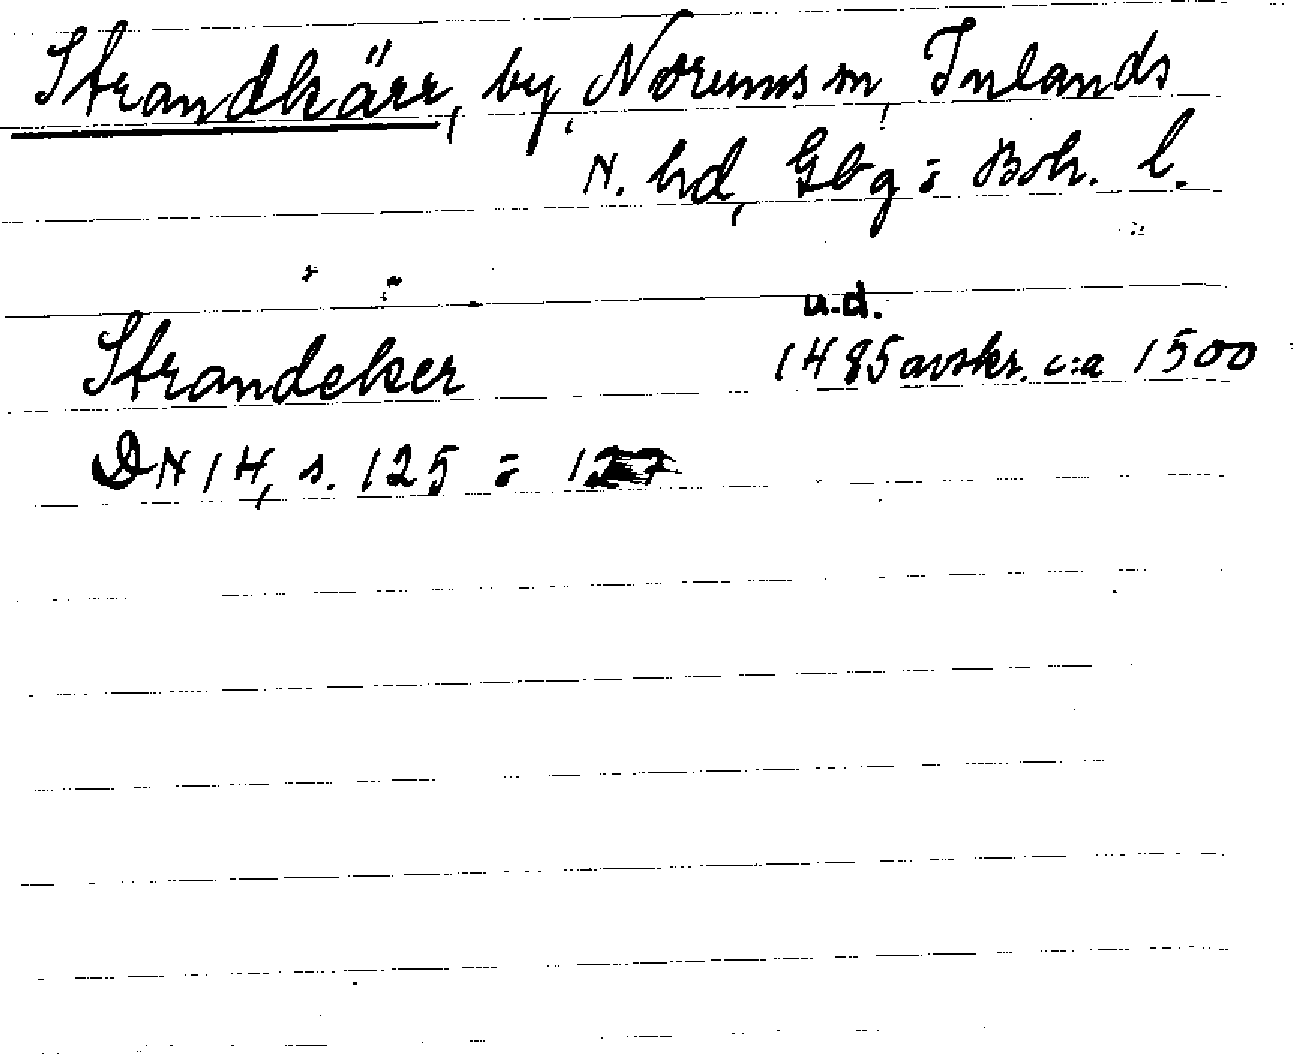 Strandkärr, by, Norums sn, Inlands
N. hd, Gbg o Boh. l.
u.d.
Strandeker 1485 avskr. c:a 1500
DN 14, s. 125 o